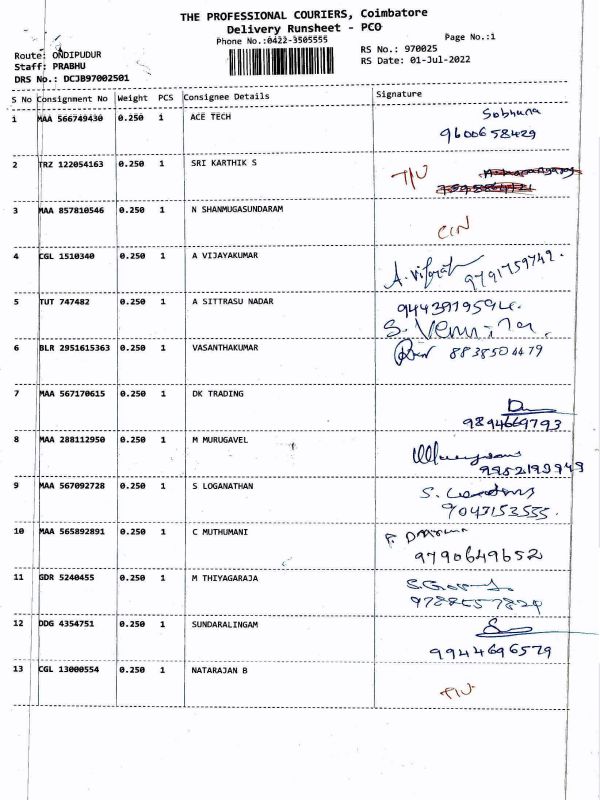 THE PROFESSIONAL COURIERS, Coimbatore
Delivery Runsheet - PCO
Phone No.:0422-3505555
Page No.:1
Route: ONDIPUDUR
RS No.: 970025
Staff: PRABHU
RS Date: 01-Jul-2022
DRS No.: DCJB97002501
S No Consignment No Weight PCS Consignee Details Signature
1 MAA 566749430 0.250 1 ACE TECH Sobhuna
9600658429
2 TRZ 122054163 0.250 1 SRI KARTHIK S T/U
3 MAA 857810546 0.250 1 N SHANMUGASUNDARAM
C/N
4 CGL 1510340 0.250 1 A VIJAYAKUMAR
9791759742.
5 TUT 747482 0.250 1 A SITTRASU NADAR
6 BLR 2951615363 0.250 1 VASANTHAKUMAR
8838504479
7 MAA 567170615 0.250 1 DK TRADING
9894669793
8 MAA 288112950 0.250 1 M MURUGAVEL
9952199949
9 MAA 567092728 0.250 1 S LOGANATHAN
9047153555.
10 MAA 565892891 0.250 1 C MUTHUMANI
9790649652
11 GDR 5240455 0.250 1 M THIYAGARAJA
12 DDG 4354751 0.250 1 SUNDARALINGAM
9944696579
13 CGL 13000554 0.250 1 NATARAJAN B
T/U